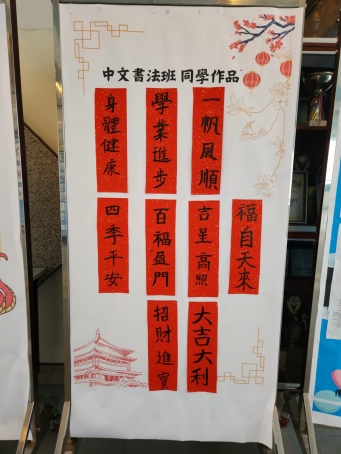 中文書法班 同學作品
一帆風順
學業進步
身體健康
福自天來
吉星高照
百福盈門
四季平安
大吉大利
招財進寶